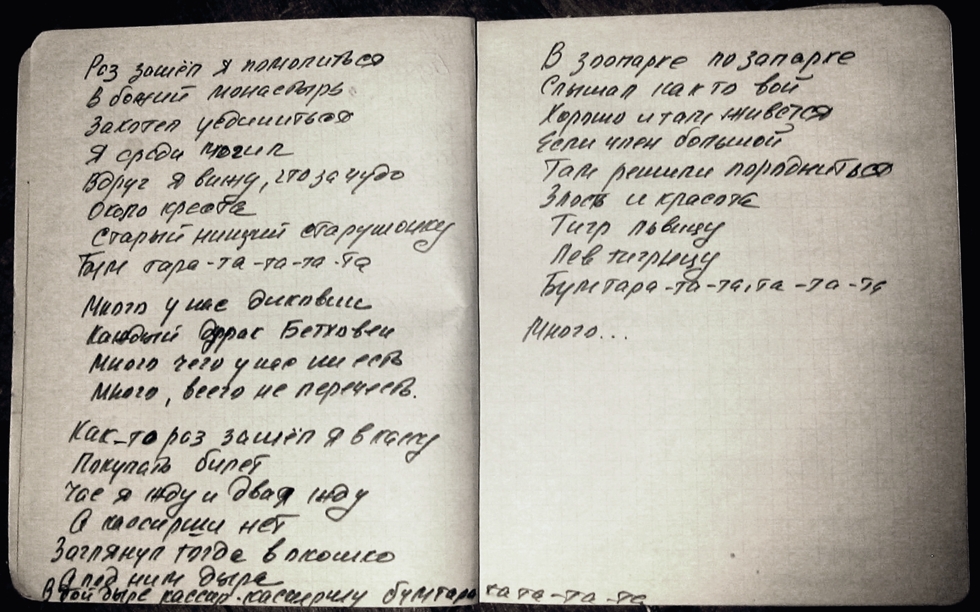 Раз зашёл я помолиться
В божий монастырь
Захотел уединиться
Я среди могил
Вдруг я вижу, что за чудо
Около креста
Старый нищий старушонку
Бум тара-та-та-та-та
Много у нас диковин
Каждый дурак Бетховен
Много чего у нас ни есть
Много, всего не перечесть.
Как-то раз зашёл я в кассу
Покупать билет
Час я жду и два я жду
А кассирши нет
Заглянул тогда в окошко
А под ним дыра
В той дыре кассир кассиршу бумтара ка та-та-та
В зоопарке по запарке
Слышал как то вой
Хорошо и там живётся
Если член большой
Там решили породниться
Злость и красота
Тигр львицу
Лев тигрицу
Бумтара-та-та, та-та-та
Много...